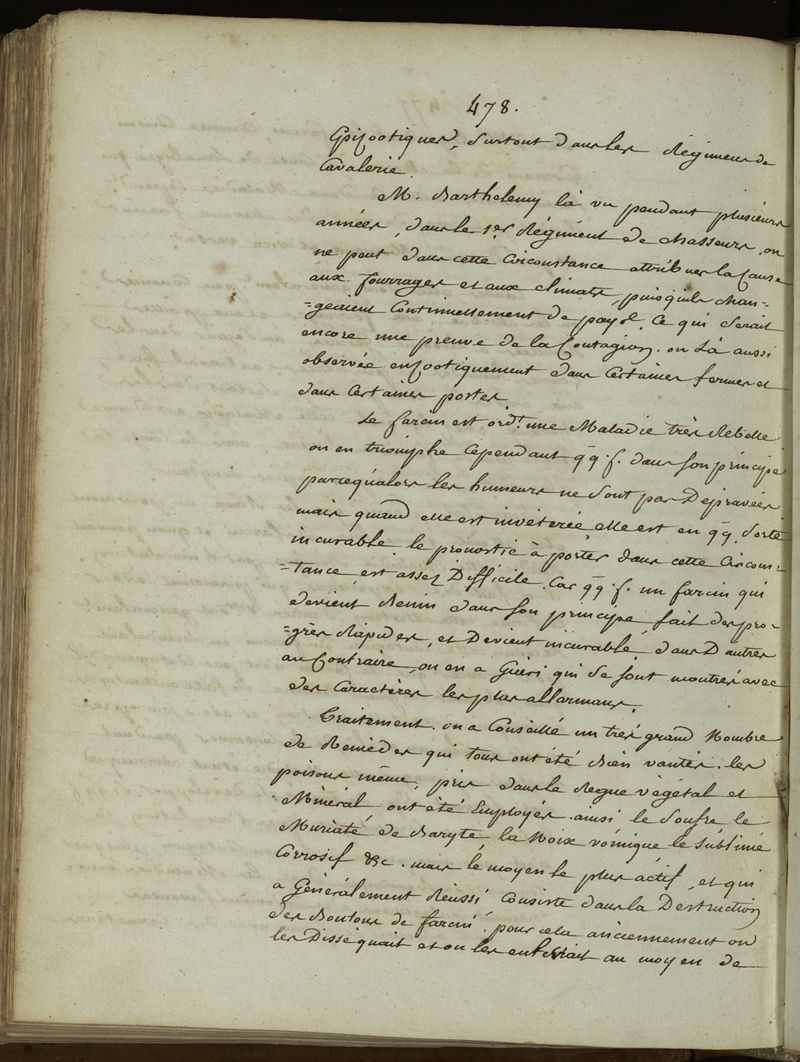 478.
Epizootiques, Surtout dans les Régimens de
Cavalerie.
M. Barthelemy là vu pendant plusieurs
années, dans le 1er Régiment de chasseurs, on
ne peut dans cette Circonstance attribuer la Cause
aux fourrages et aux climats, puisqu'ils chan=
=geaient Continuellement de pays. Ce qui Serait
encore une preuve de la Contagion. on L'à aussi
observée enzootiquement dans Certaines fermes et
dans Certaines postes.
Le farcin est ordt une Maladie très Rebelle
on en triomphe Cependant qq. f. dans Son principe
parcequ'alors les humeurs ne Sont pas Dépravées
mais quand elle est invétérée elle est en qq. Sorte
incurable. le pronostic à porter dans cette Circons=
=tance est assez Difficile. Car qq. f. un farcin qui
devient Benin dans Son principe, fait des pro=
=grès Rapides, et Devient incurable, dans D'autres
au Contraire, on en a Guéri qui Se Sont montrés avec
des Caractères les plus allarmans.
Traitement. on a Conseillé un très grand Nombre
de Remèdes qui tous ont été Bien vantés. les
poisons même, pris dans le Regne végétal et
Minéral ont été Employés. ainsi le Soufre le
Muriate de Baryte, la Noix vomique le Sublimé
Corrosif &c. mais le moyen le plus actif, et qui
a Généralement Réussi Consiste dans la Destruction
des Boutons de farcin. pour cela anciennement on
les Disséquait et on les enlevait au moyen de